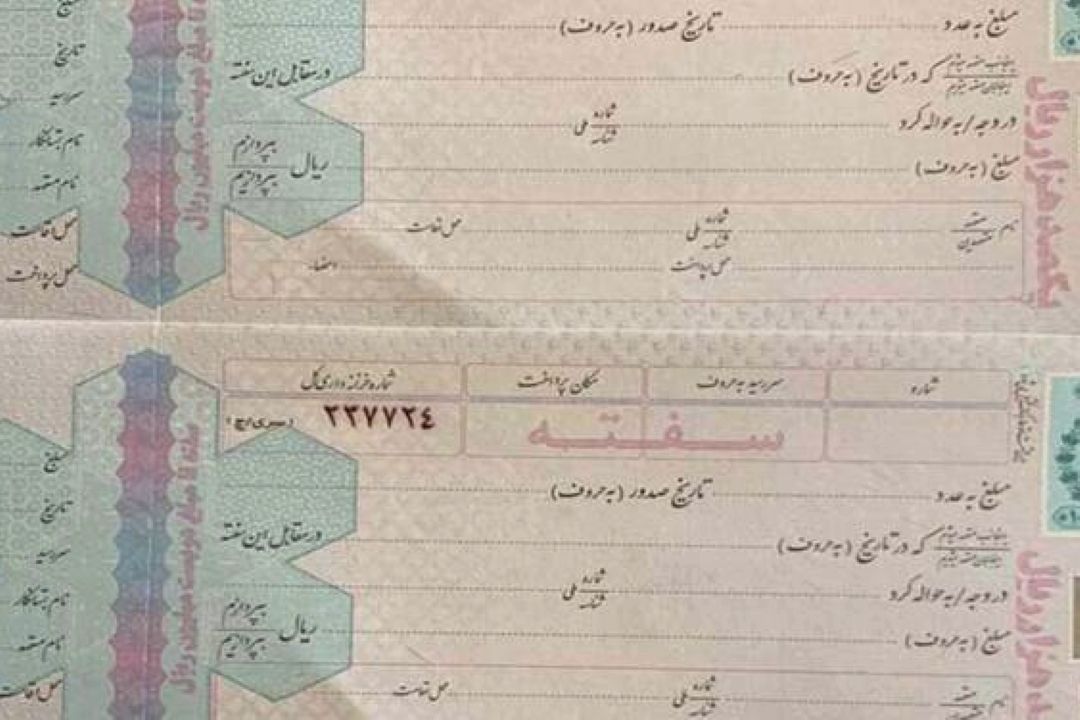 مبلغ به عدد تاریخ صدور (به حروف)
که در تاریخ (به حروف) در مقابل این سفته
در وجه / به حواله کرد شماره شناسه ملی
مبلغ (به حروف) ریال بپردازم بپردازیم
نام متعهد متعهدین شماره شناسه ملی محل اقامت
محل پرداخت امضاء
یکصد هزار ریال
سفته تا مبلغ دویست میلیون ریال
مبلغ
تاریخ
سررسید
نام بستانکار
نام متعهد
محل اقامت
محل پرداخت
شماره سررسید به حروف مکان پرداخت شماره خزانه داری کل
سفته ۲۲۷۷۲۴ (سری/چ)
مبلغ به عدد تاریخ صدور (به حروف)
که در تاریخ (به حروف) در مقابل این سفته
در وجه / به حواله کرد شماره شناسه ملی
مبلغ (به حروف) ریال بپردازم بپردازیم
متعهد متعهدین شماره شناسه ملی محل اقامت
هزار ریال
سفته تا مبلغ دویست میلیون ریال
مبلغ
تاریخ
سررسید
نام بستانکار
نام متعهد
محل اقامت